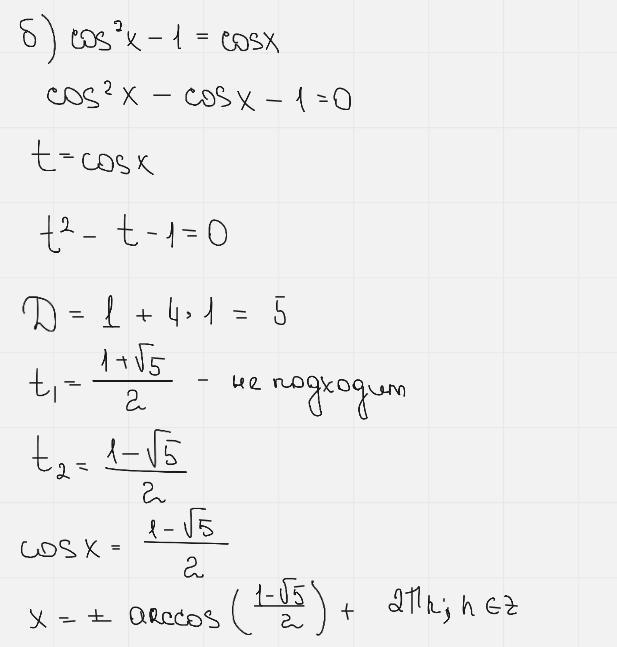 б) cos²x − 1 = cosx
cos²x − cosx − 1 = 0
t = cosx
t² − t − 1 = 0
D = 1 + 4·1 = 5
t₁ = (1+√5)/2 - не подходит
t₂ = (1−√5)/2
cosx = (1−√5)/2
x = ± arccos((1−√5)/2) + 2πn; n ∈ z